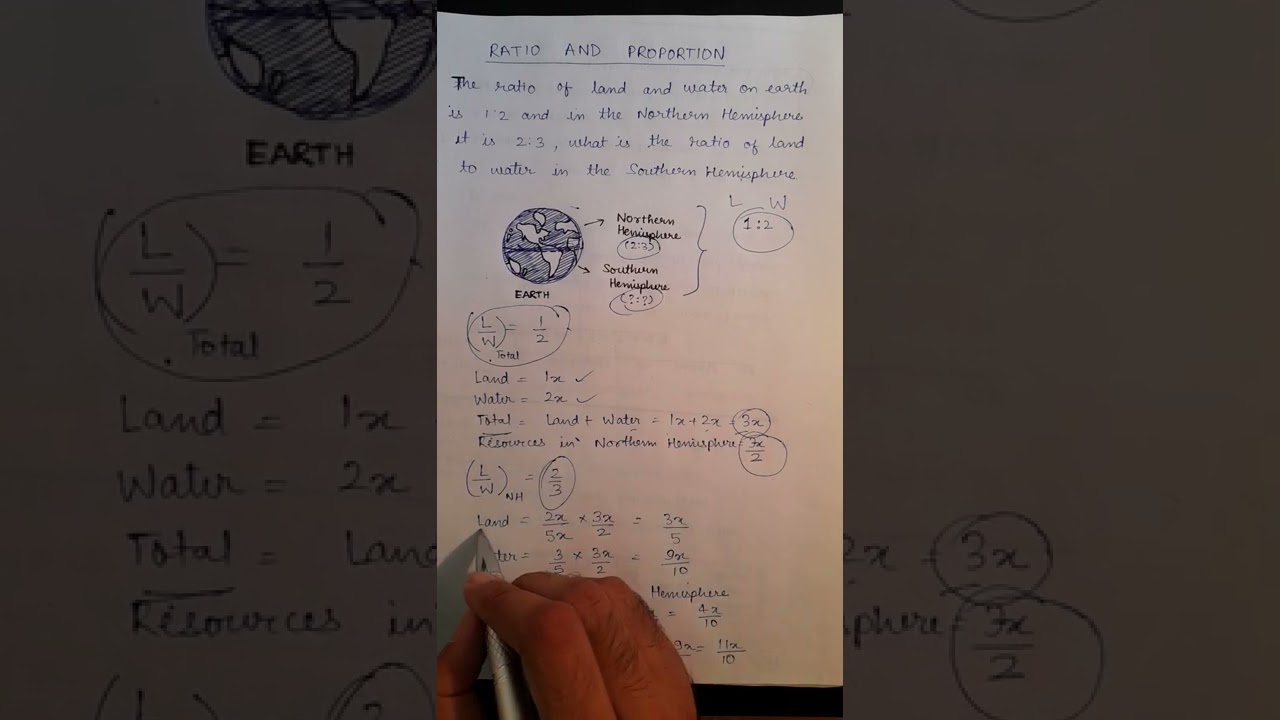 RATIO AND PROPORTION
The ratio of land and water on earth
is 1:2 and in the Northern Hemisphere
it is 2:3, what is the ratio of land
to water in the Southern Hemisphere.
L W
1:2
Northern
Hemisphere
(2:3)
Southern
Hemisphere
(?:?)
EARTH
(L/W) Total = 1/2
Land = 1x ✓
Water = 2x ✓
Total = Land + Water = 1x + 2x = 3x
Resources in Northern Hemisphere = 3x/2
(L/W)NH = 2/3
Land = 2x/5x × 3x/2 = 3x/5
ter = 3/5 × 3x/2 = 9x/10
Hemisphere
= 4x/10
9x = 11x/10
EARTH
L/W = 1/2
Total
Land = 1x
Water = 2x
Total =
Resources in
2x = 3x
phere = 3x/2